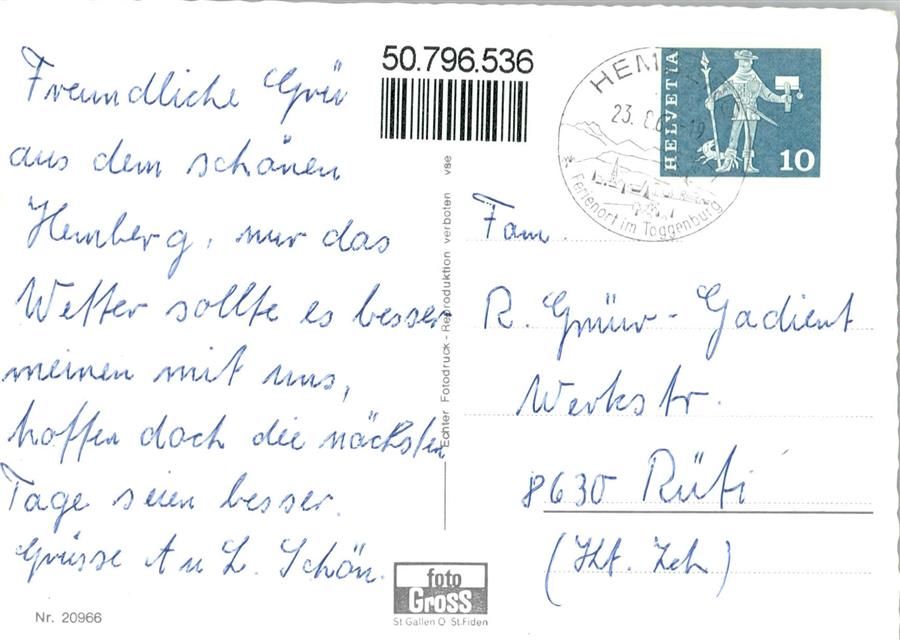 Freundliche Grü
aus dem schönen
Hemberg, nur das
Wetter sollte es besser
meinen mit uns,
hoffen doch die nächsten
Tage seien besser.
Grüsse A u L. Schön.
Nr. 20966
50.796.536
Echter Fotodruck - Reproduktion verboten vse
foto
Gross
St. Gallen O St. Fiden
HEM
23.
Ferienort im Toggenburg
HELVETIA
10
Fam.
R. Gmür - Gadient
Werkstr.
8630 Rüti
(Kt. Zch)